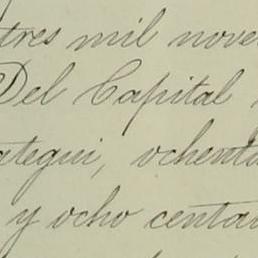 tres mil nove
Del Capital
ategui, ochenta
y ocho centa